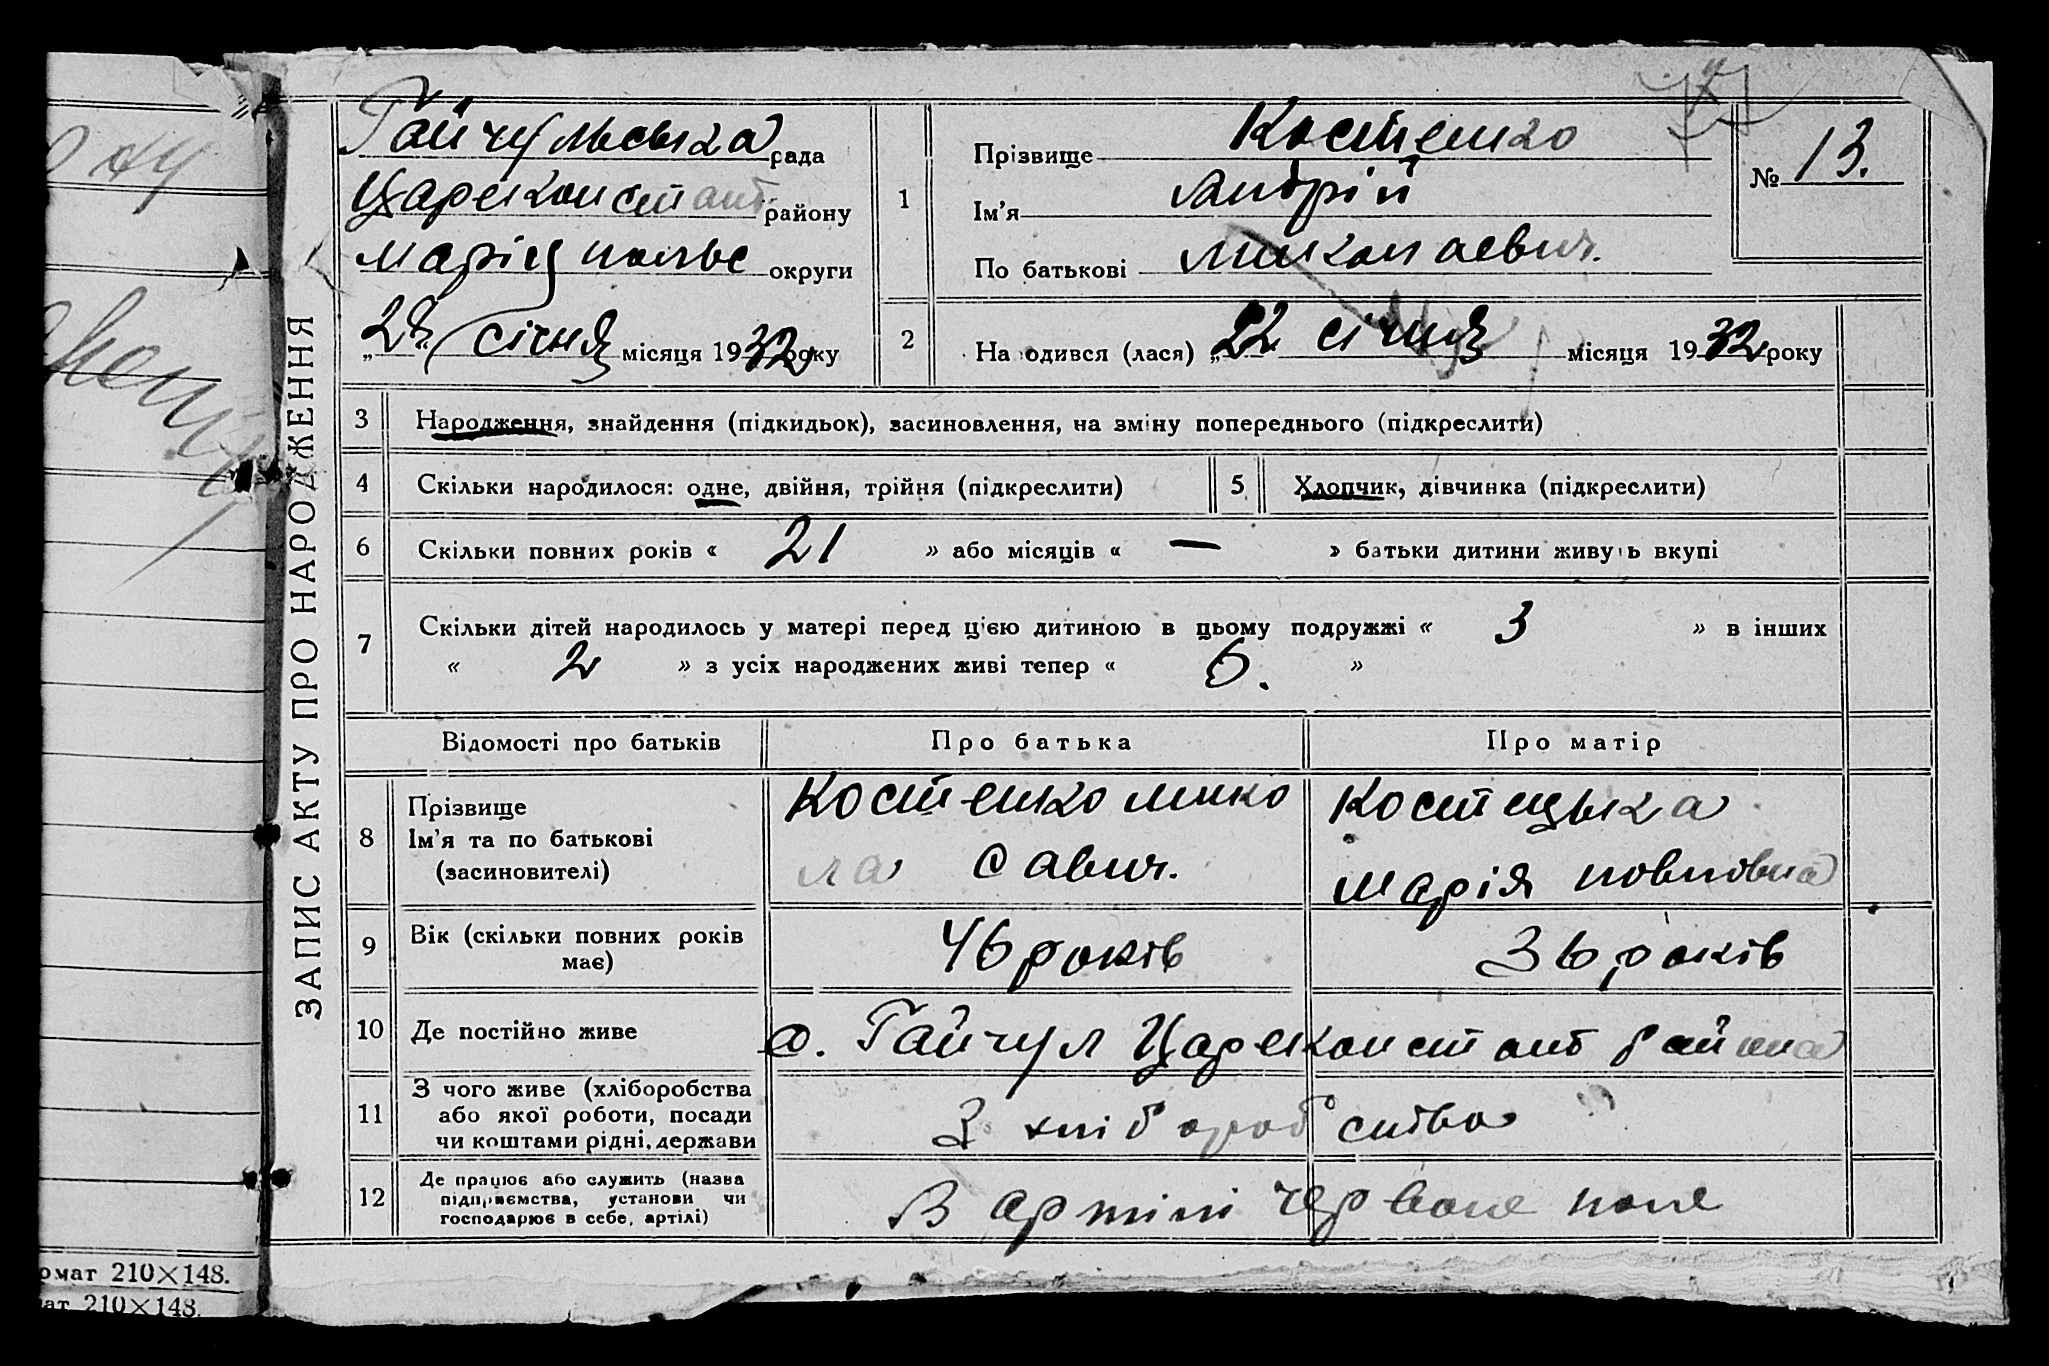 ЗАПИС АКТУ ПРО НАРОДЖЕННЯ
Гайчульська рада
Царекконстант району
маріупольс округи
„28“ січня місяця 1932 року
1
Прізвище Костенко
Ім'я Андрій
По батькові миколаевич.
№ 13.
2
На одився (лася) „22 січня місяця 1932 року
3 Народження, знайдення (підкидьок), засиновлення, на зміну попереднього (підкреслити)
4 Скільки народилося: одне, двійня, трійня (підкреслити)
5 Хлопчик, дівчинка (підкреслити)
6 Скільки повних років « 21 » або місяців « — » батьки дитини живуть вкупі
7 Скільки дітей народилось у матері перед цією дитиною в цьому подружжі « 3 » в інших
« 2 » з усіх народжених живі тепер « 6. »
Відомості про батьків Про батька Про матір
8
Прізвище
Ім'я та по батькові
(засиновителі)
Костенко мико
ла Савич.
Костецька
марія
9
Вік (скільки повних років
має)
46 років
36 років
10 Де постійно живе
с. Гайчул Царекконстант района
11
З чого живе (хліборобства
або якої роботи, посади
чи коштами рідні, держави
З хліборобства
12
Де працює або служить (назва
підприємства, установи чи
господарює в себе, артілі)
В артілі червоне поле
омат 210×148.
ат 210×148.